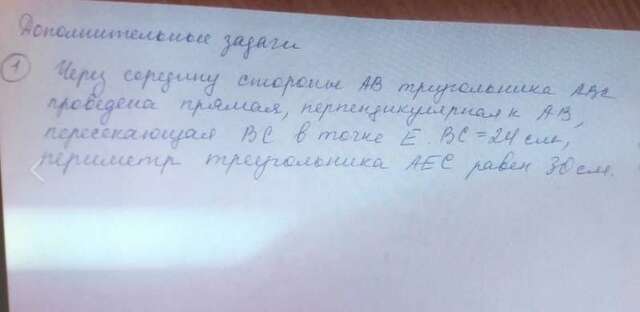 Дополнительные задачи
1 Через середину стороны АВ треугольника АВС
проведена прямая, перпендикулярная к АВ,
пересекающая ВС в точке Е. ВС = 24 см,
периметр треугольника АЕС равен 30 см.